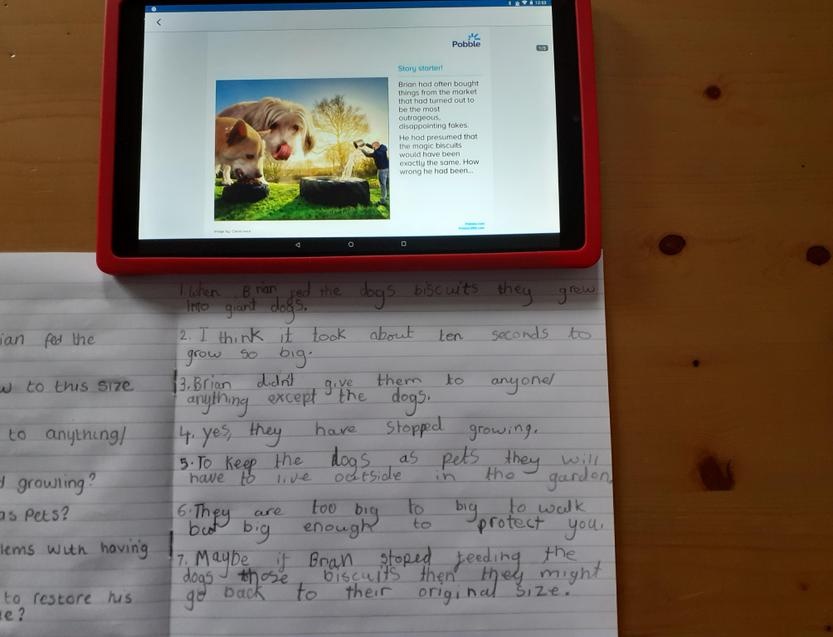 12:03
Pobble
1/5
Story starter!
Brian had often bought
things from the market
that had turned out to
be the most
outrageous,
disappointing fakes.
He had presumed that
the magic biscuits
would have been
exactly the same. How
wrong he had been...
1. When Brian fed the dogs biscuits they grew
into giant dogs.
2. I think it took about ten seconds to
grow so big.
3. Brian didn't give them to anyone/
anything except the dogs.
4. yes, they have stopped growing.
5. To keep the dogs as pets they will
have to live outside in the garden,
6. They are too big to big to walk
but big enough to protect you.
7. Maybe if Brian stoped feeding the
dogs those biscuits then they might
go back to their original size.
ian fed the
w to this size
to anything/
d growling?
as Pets?
lems with having
to restore his
e?